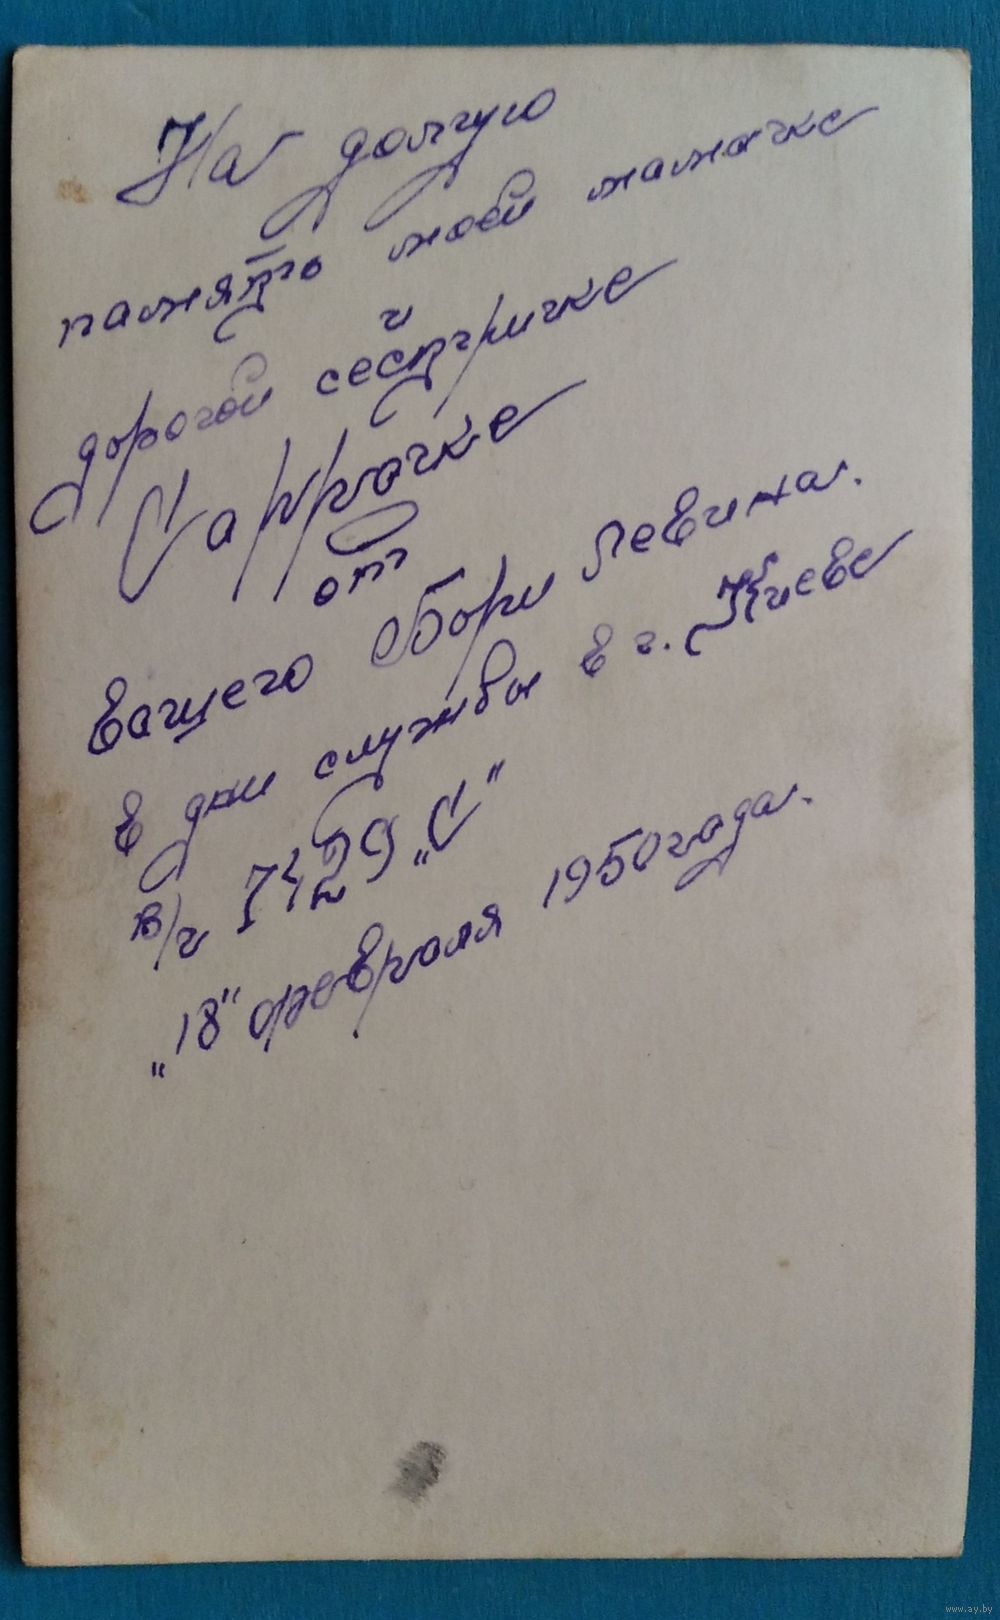 На долгую
память моей мамочке
и
дорогой сестричке
Саррочке
от
Вашего Бори Левина.
В дни службы в г. Киеве
в/ч 7429 „С"
„18" февраля 1950 года.
www.ay.by